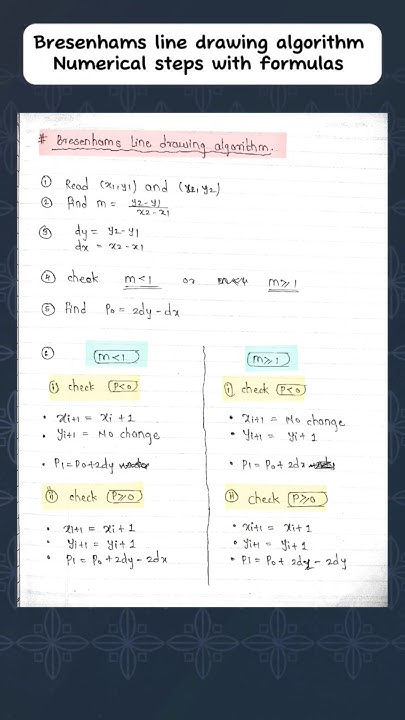 Bresenhams line drawing algorithm
Numerical steps with formulas
# Bresenhams line drawing algorithm.
① Read (x1,y1) and (y2, y2)
② Find m = y2-y1 / x2-x1
③ dy = y2-y1
dx = x2-x1
④ check m<1 or m≥1
⑤ find P0 = 2dy-dx
⑥
m<1
i) check P<0
• xi+1 = xi+1
• yi+1 = No change
• P1=P0+2dy
ii) check P≥0
• xi+1 = xi+1
• yi+1 = yi+1
• P1 = P0+2dy-2dx
m≥1
i) check P<0
• xi+1 = No change
• yi+1 = yi+1
• P1 = P0+2dx
ii) check P≥0
• xi+1 = xi+1
• yi+1 = yi+1
• P1 = P0+ 2dy - 2dy